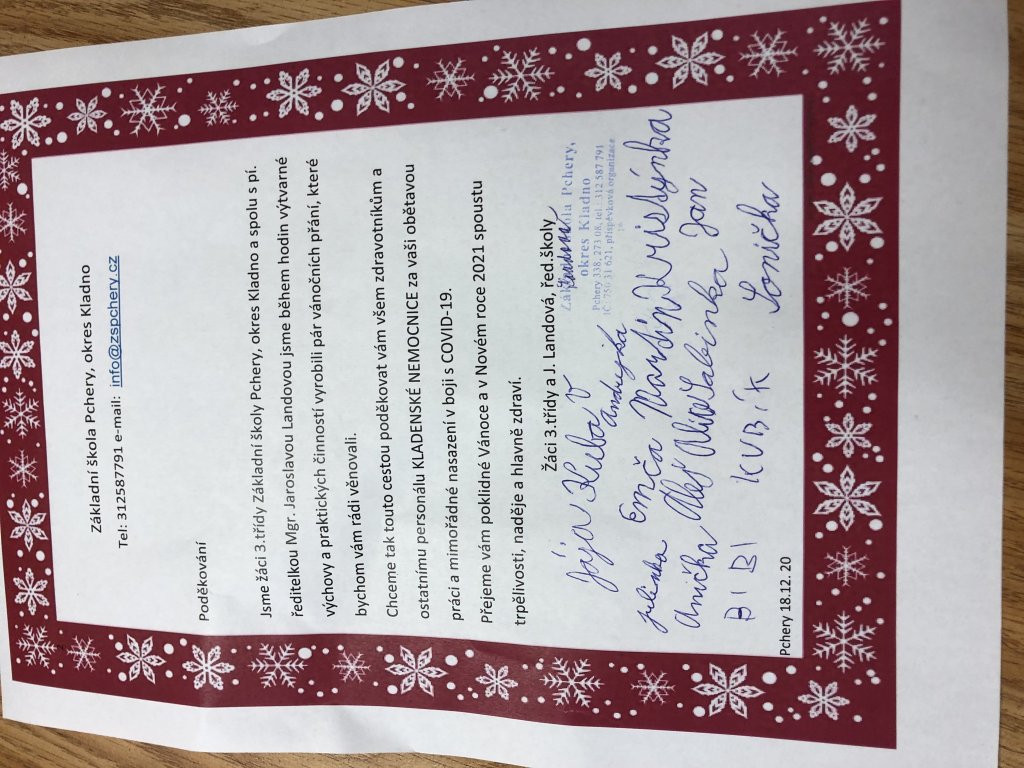 Základní škola Pchery, okres Kladno
Tel: 312587791 e-mail: info@zspchery.cz
Poděkování
Jsme žáci 3.třídy Základní školy Pchery, okres Kladno a spolu s pí.
ředitelkou Mgr. Jaroslavou Landovou jsme během hodin výtvarné
výchovy a praktických činností vyrobili pár vánočních přání, které
bychom vám rádi věnovali.
Chceme tak touto cestou poděkovat vám všem zdravotníkům a
ostatnímu personálu KLADENSKÉ NEMOCNICE za vaši obětavou
práci a mimořádné nasazení v boji s COVID-19.
Přejeme vám poklidné Vánoce a v Novém roce 2021 spoustu
trpělivosti, naděje a hlavně zdraví.
Žáci 3.třídy a J. Landová, řed.školy
Základní škola Pchery,
okres Kladno
Pchery 338, 273 08, tel.: 312 587 791
IČ: 750 31 621, příspěvková organizace
Jája Kuba V
Andrejka
julinka Emča Martin Kristýnka
Anička Alej Sabinka Jan
BI BI KUBÍK Sonička
Pchery 18.12. 20